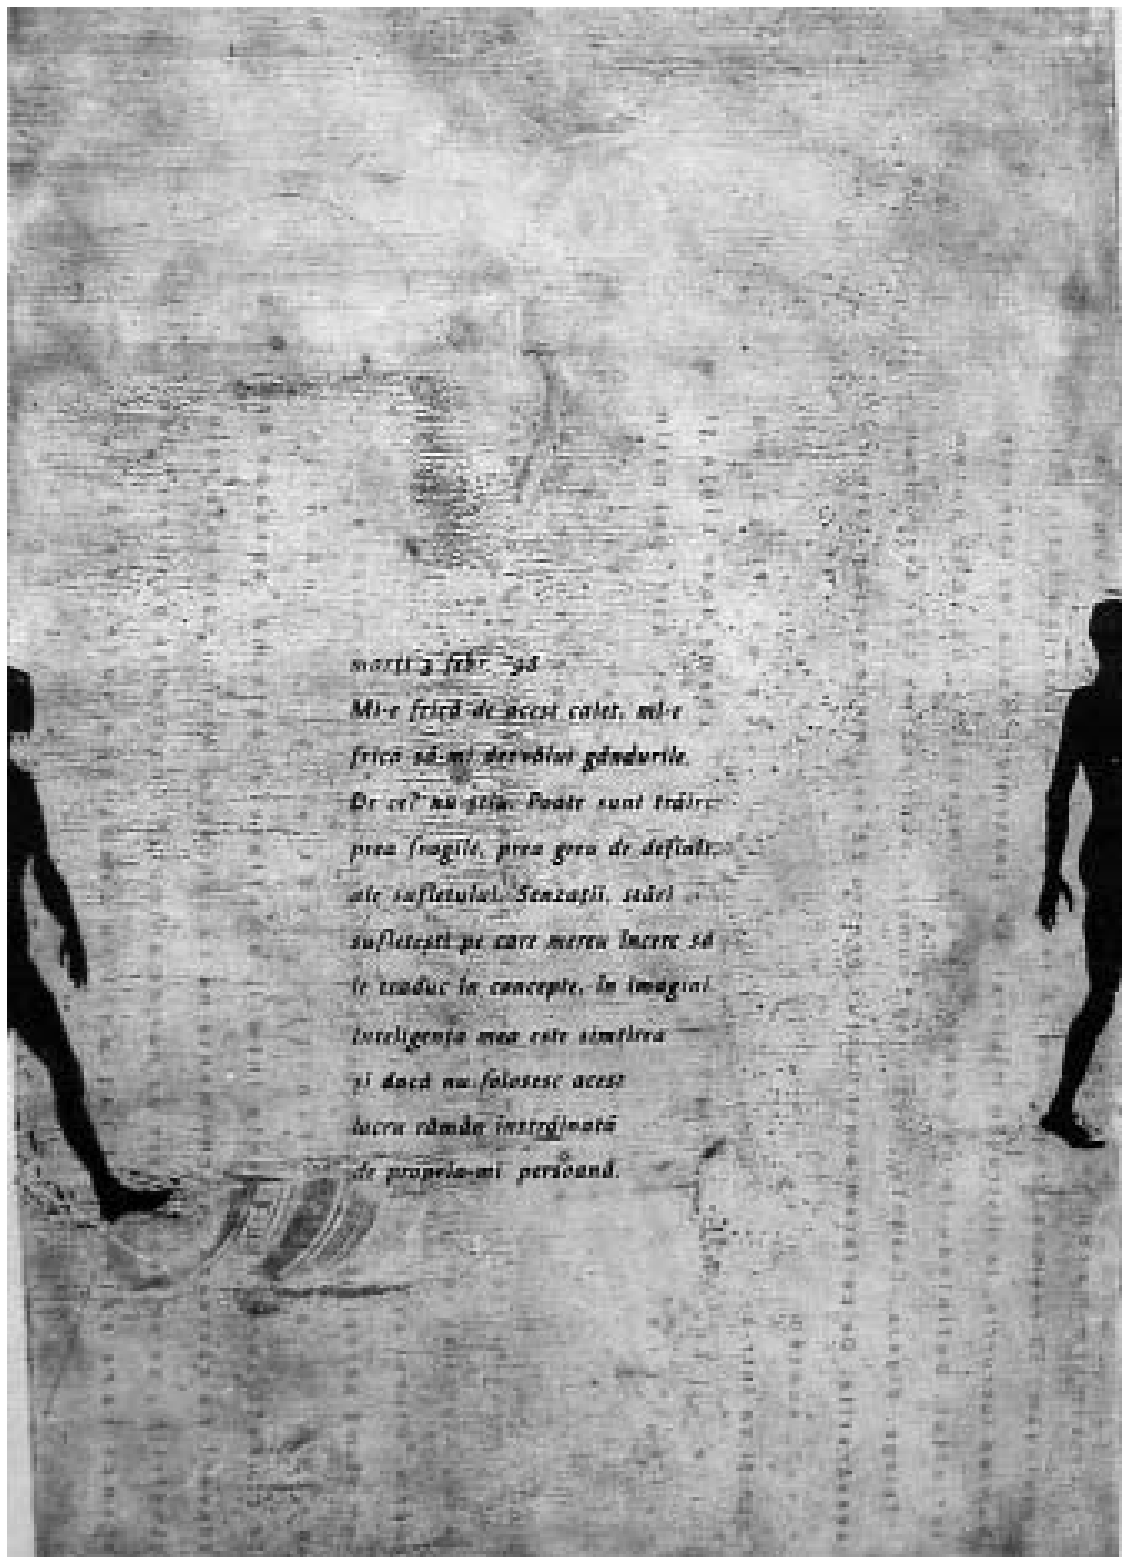 marți 3 febr. -98
Mi-e frică de acest caiet, mi-e
frică să-mi dezvălui gândurile.
De ce? nu știu. Poate sunt trăiri
prea fragile, prea greu de definit,
ale sufletului. Senzații, stări
sufletești pe care mereu încerc să
le traduc în concepte, în imagini.
Inteligența mea este simțirea
și dacă nu folosesc acest
lucru rămân înstrăinată
de propria-mi persoană.